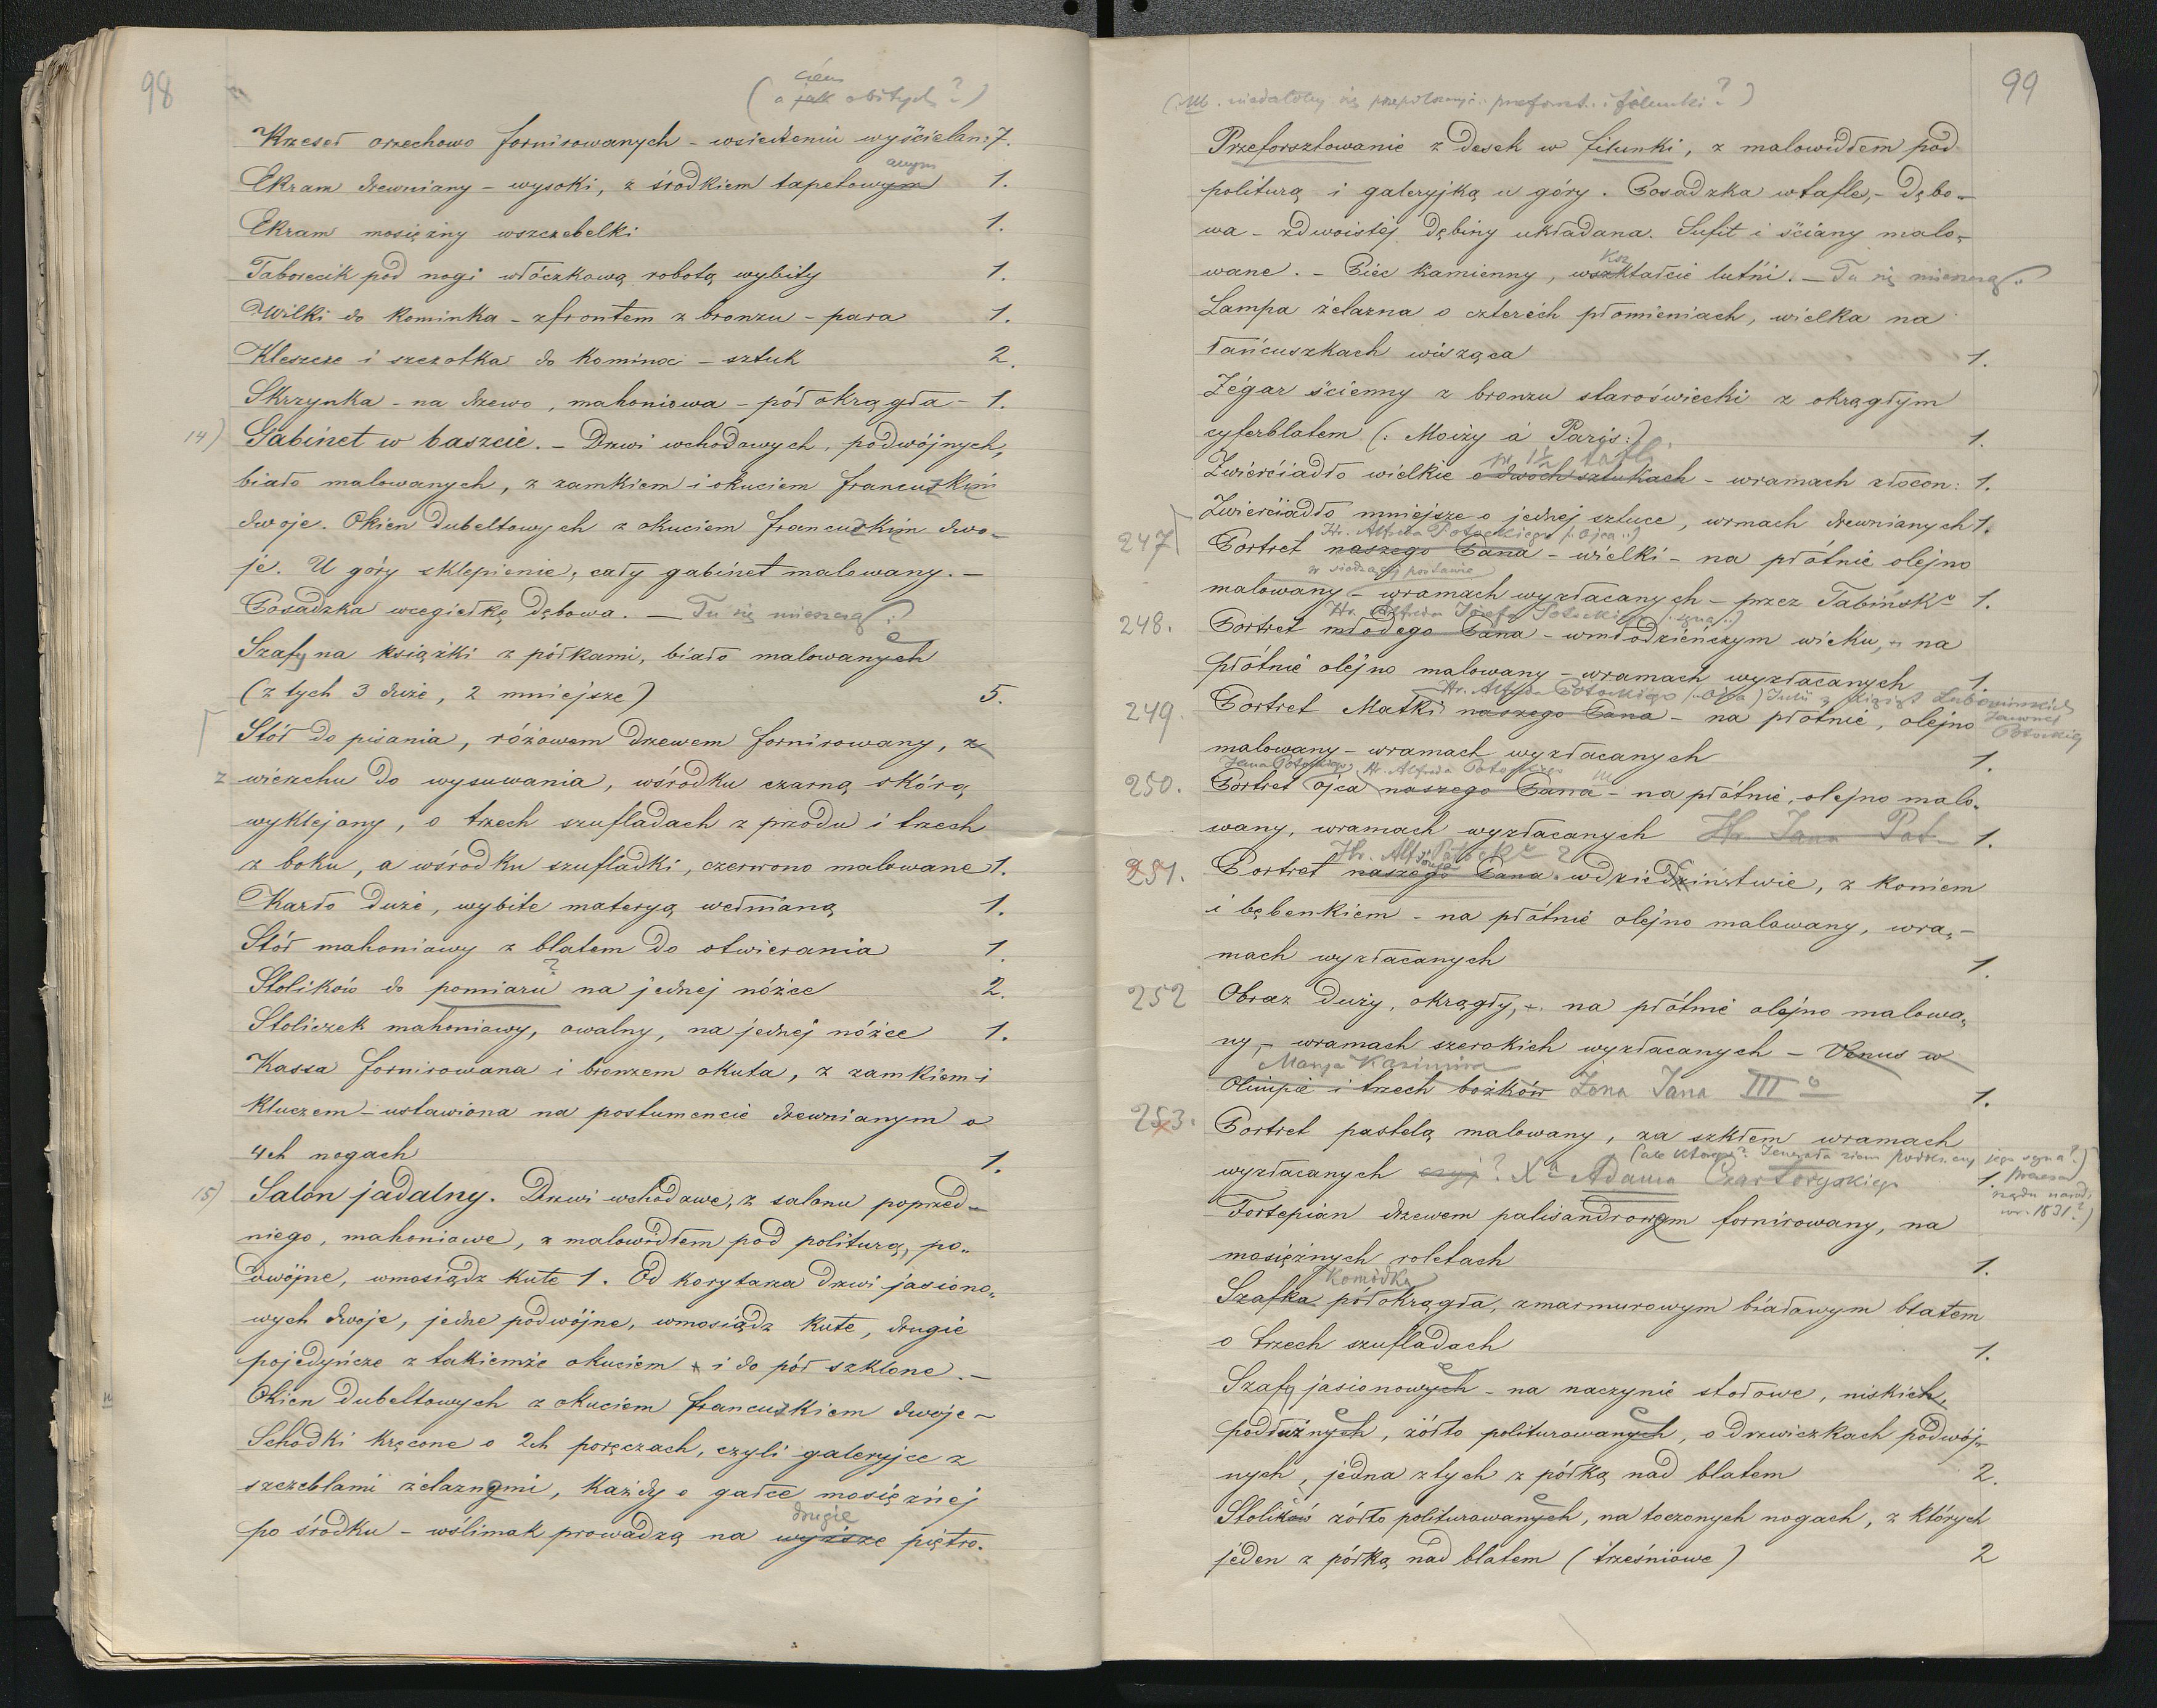 98
(a jak obitych?)
czem
Krzeseł orzechowo fornirowanych - wsiedzeniu wyścielan: 7.
Ekram drewniany - wysoki, z środkiem tapetowym 1.
anym
Ekram mosiężny wszczebelki 1.
Taborecik pod nogi włóczkową robotą wybity 1.
Wilki do kominka - zfrontem z bronzu - para 1.
Kleszcze i szczotka do kominoc - sztuk 2.
Skrzynka - na drzewo, mahoniowa - pół okrągła - 1.
14) Gabinet w baszcie. - Drzwi wchodowych, podwójnych,
biało malowanych, z zamkiem i okuciem francuzkim
dwoje. Okien dubeltowych z okuciem francuzkim dwo-
je. U góry sklepienie, cały gabinet malowany. -
Posadzka wcegiełkę dębowa. - Tu się mieszczą:
Szafy na książki z półkami, biało malowanych
(z tych 3 duże, 2 mniejsze) 5.
Stół do pisania, różowem drzewem fornirowany, z
z wierzchu do wysuwania, wśrodku czarną skórą
wyklejany, o trzech szufladach z przodu i trzech
z boku, a wśrodku szufladki, czerwono malowane 1.
Karło duże, wybite materyą wełnianą 1.
Stół mahoniowy z blatem do otwierania 1.
Stolików do pomiaru? na jednej nóżce 2.
Stoliczek mahoniowy, owalny, na jednej nóżce 1.
Kassa fornirowana i bronzem okuta, z zamkiem i
kluczem - ustawiona na postumencie drewnianym o
4ch nogach 1.
15) Salon jadalny. Drzwi wchodowe, z salonu poprzed-
niego, mahoniowe, z malowidłem pod politurą, po-
dwójne, wmosiądz kute 1. Od korytarza drzwi jasiono-
wych dwoje, jedne podwójne, wmosiądz kute, drugie
pojedyńcze z takiemże okuciem i do pół szklone. -
Okien dubeltowych z okuciem francuzkiem dwoje -
Schodki kręcone o 2ch poręczach, czyli galeryjce z
szczeblami żelaznemi, każdy o gałce mosiężnej
drugie
po środku - wślimak prowadzą na wyższe piętro.
99
Przeforsztowanie z desek w filunki, z malowidłem pod
politurą i galeryjką u góry. Posadzka wtafle, - dębo-
wa - zdwoistej dębiny układana. Sufit i ściany malo-
wane. - Piec kamienny, wszktałcie lutni. - Tu się mieszczą:
Ksz
Lampa żelazna o czterech płomieniach, wielka na
łańcuszkach wisząca 1.
Zégar ścienny z bronzu staroświecki z okrągłym
cyferblatem (: Moizy à Paris:) 1.
w 1½ tafli
Zwierciadło wielkie o dwóch sztukach - wramach złocon: 1.
Zwierciadło mniejsze o jednej sztuce, wrmach drewnianych 1.
Hr. Alfreda Potockiego (: Ojca :)
247 Portret naszego Pana - wielki - na płótnie olejno
w siedzącej postawie
malowany - wramach wyzłacanych - przez Tabińsko 1.
Hr. Alfreda Józefa Potockiego (: syna :)
248. Portret młodego Pana - wmłodzieńczym wieku, - na
płótnie olejno malowany - wramach wyzłacanych 1.
Hr. Alfreda Potockiego (: Ojca) Julii z Książąt Lubomirskich
Janowej
Potockiej
249. Portret Matki naszego Pana - na płótnie, olejno
malowany - wramach wyzłacanych 1.
Jana Potockiego, Hr. Alfreda Potockiego
250. Portret ojca naszego Pana - na płótnie, olejno malo-
wany, wramach wyzłacanych Hr. Jana Pot 1.
Hr. Alf. Potocko ?
251. Portret naszego Pana wdziedziństwie, z koniem
i bębenkiem - na płótnie olejno malowany, wra-
mach wyzłacanych 1.
252 Obraz duży, okrągły, - na płótnie olejno malowa-
ny, - wramach szerokich wyzłacanych - Venus w
Marya Kazimira
Olimpie i trzech bożków Żona Jana III o 1.
253. Portret pastelą malowany, za szkłem wramach
(ale którego? Jenerała ziem podolskich czy jego syna?)
wyzłacanych czyj? Xa Adama Czartoryskiego 1.
prezesa
rządu narod.
w r. 1831?)
Fortepian drzewem palisandrowem fornirowany, na
mosiężnych roletach 1.
Komódka
Szafka półokrągła, zmarmurowym białawym blatem
o trzech szufladach 1.
Szafy jasionowych - na naczynie stołowe, niskich,
podłużnych, żółto politurowanych, o drzwiczkach podwój-
nych, jedna z tych z półką nad blatem 2.
Stolików żółto politurowanych, na toczonych nogach, z których
jeden z półką nad blatem (trześniowe) 2